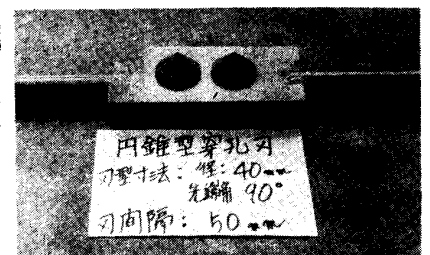 円錐型穿孔刃
刃型寸法: 径: 40mm
先端角 90°
刃間隔: 50mm